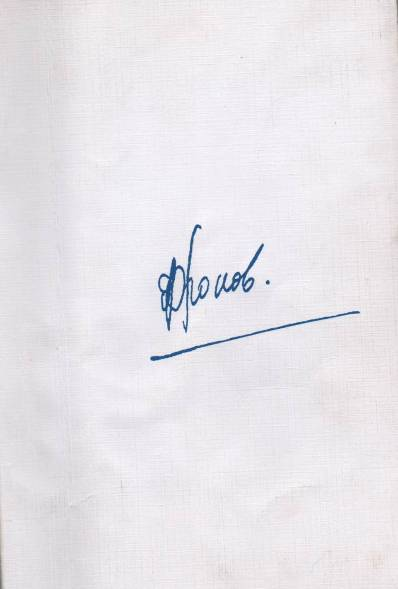 Фролов.